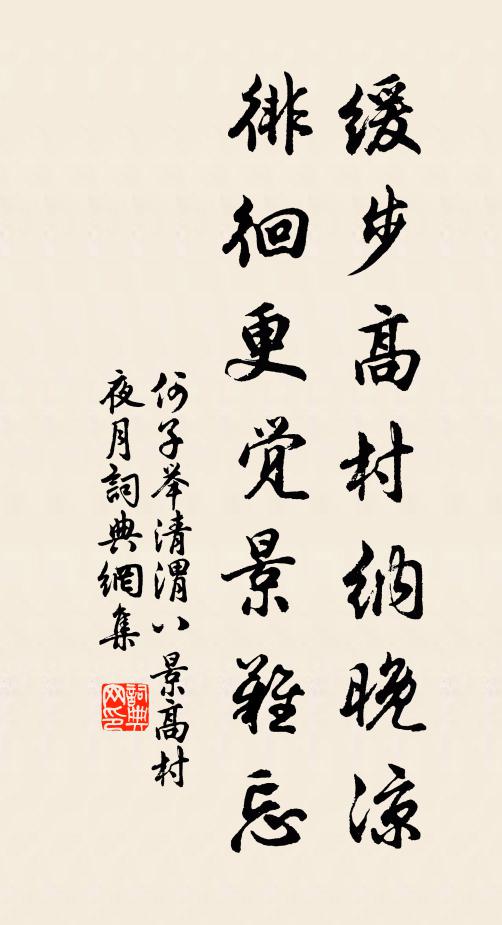 缓步高村纳晚凉
徘徊更觉景难忘
何子举清渭八景高村
夜月词典網集
詞典网印